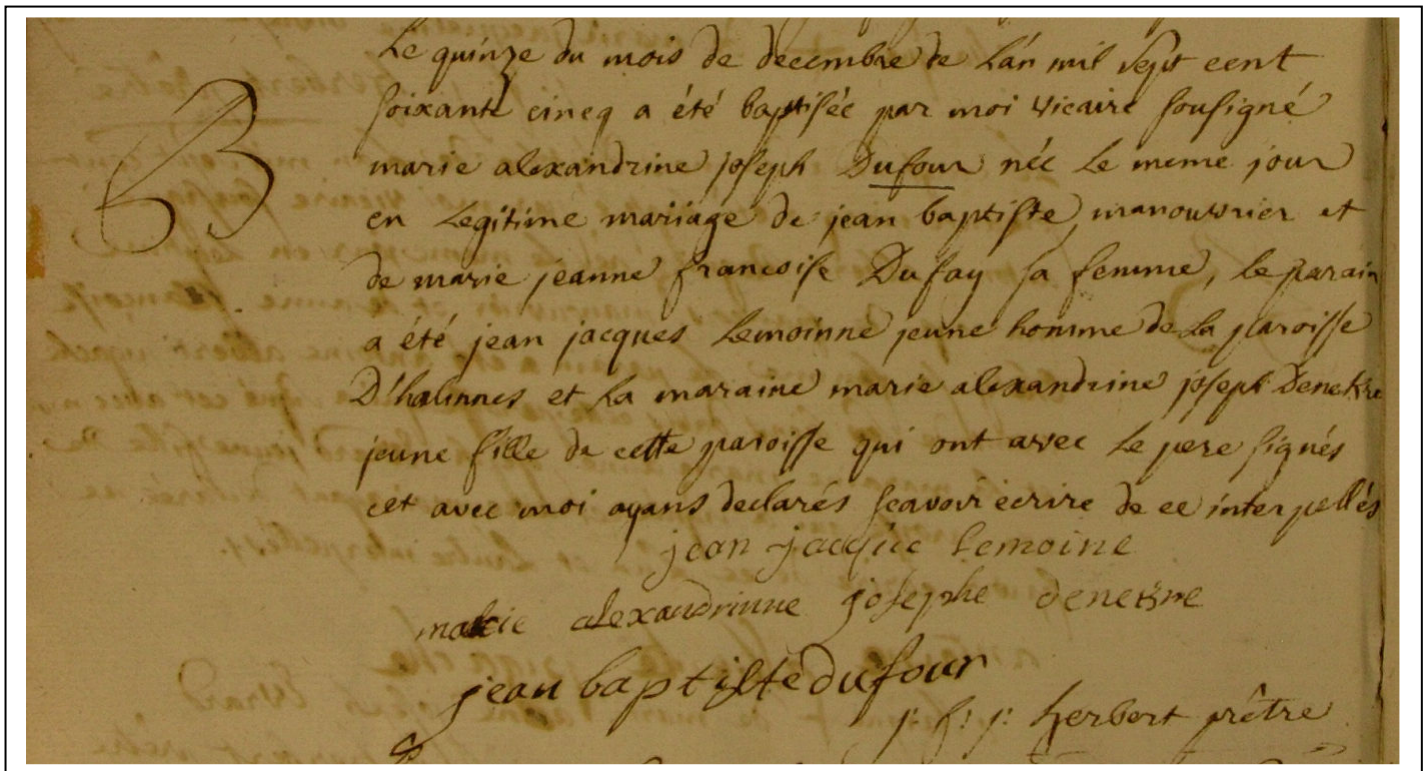 Le quinze du mois de decembre de L'an mil sept cent
B
soixante cincq a été baptisée par moi vicaire sousigné
marie alexandrine joseph Dufour née Le meme jour
en Legitime mariage de jean baptiste manouvrier et
de marie jeanne francoise Dufay sa femme, le parain
a été jean jacques Lemoinne jeune homme de La paroisse
D'halinnes et La maraine marie alexandrine joseph Denekre
jeune fille de cette paroisse qui ont avec Le pere signés
et avec moi ayans declarés scavoir écrire de ce interpellés
jean jacque lemoine
marie alexandrinne josephe denekre
jean baptiste dufour
j: f: j: herbert prêtre